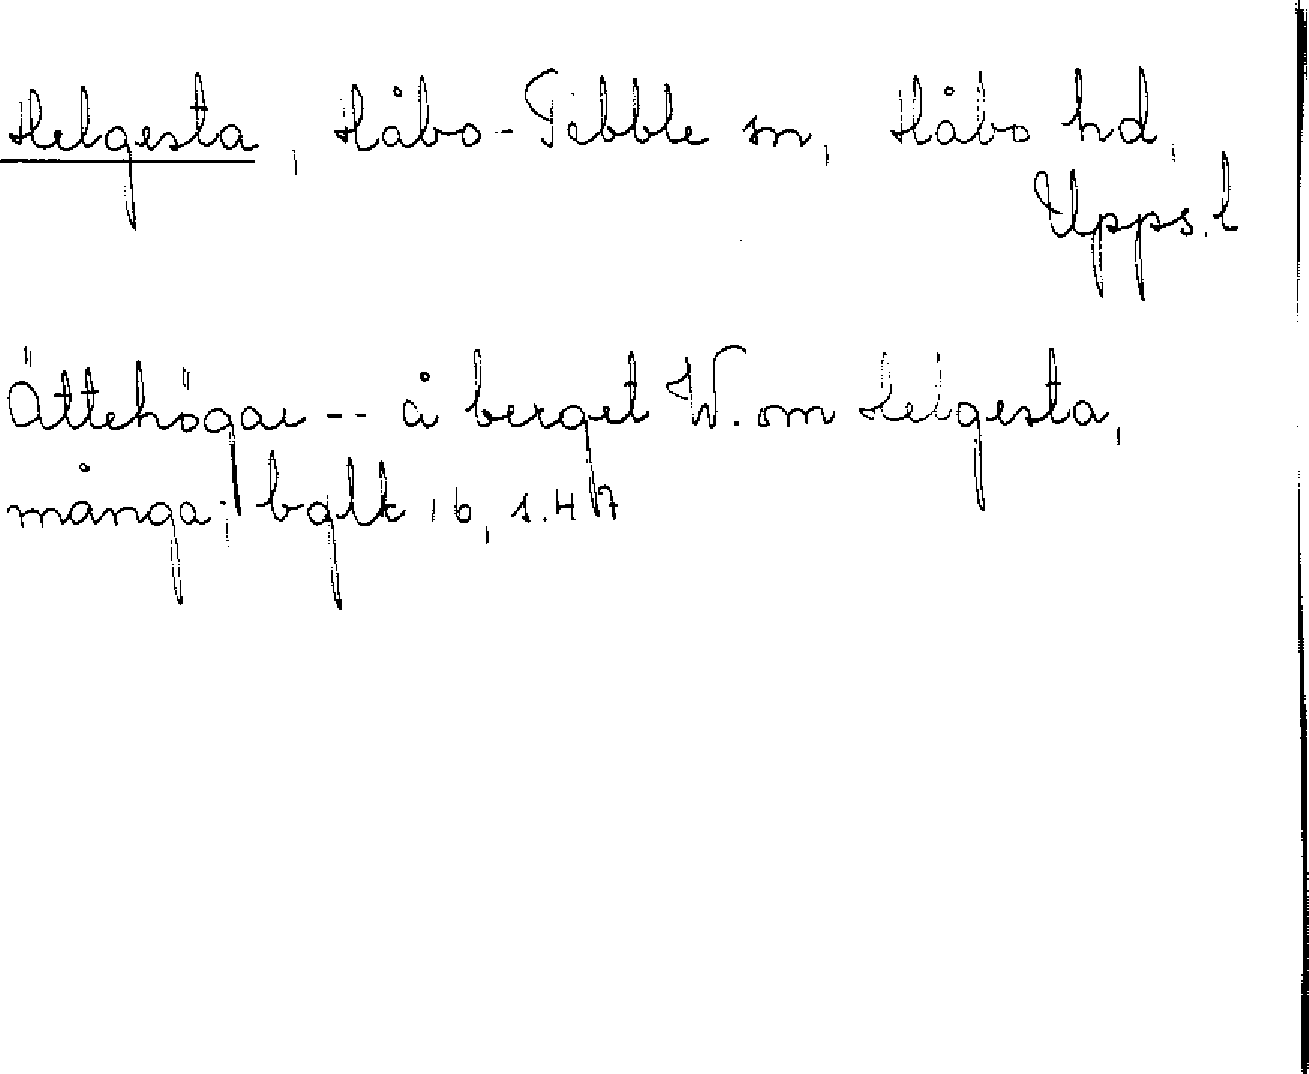 Helgesta, Håbo-Tibble sn, Håbo hd,
Upps. l
Ättehögar -- å berget W. om Helgesta,
många; bglk 16, s. 47